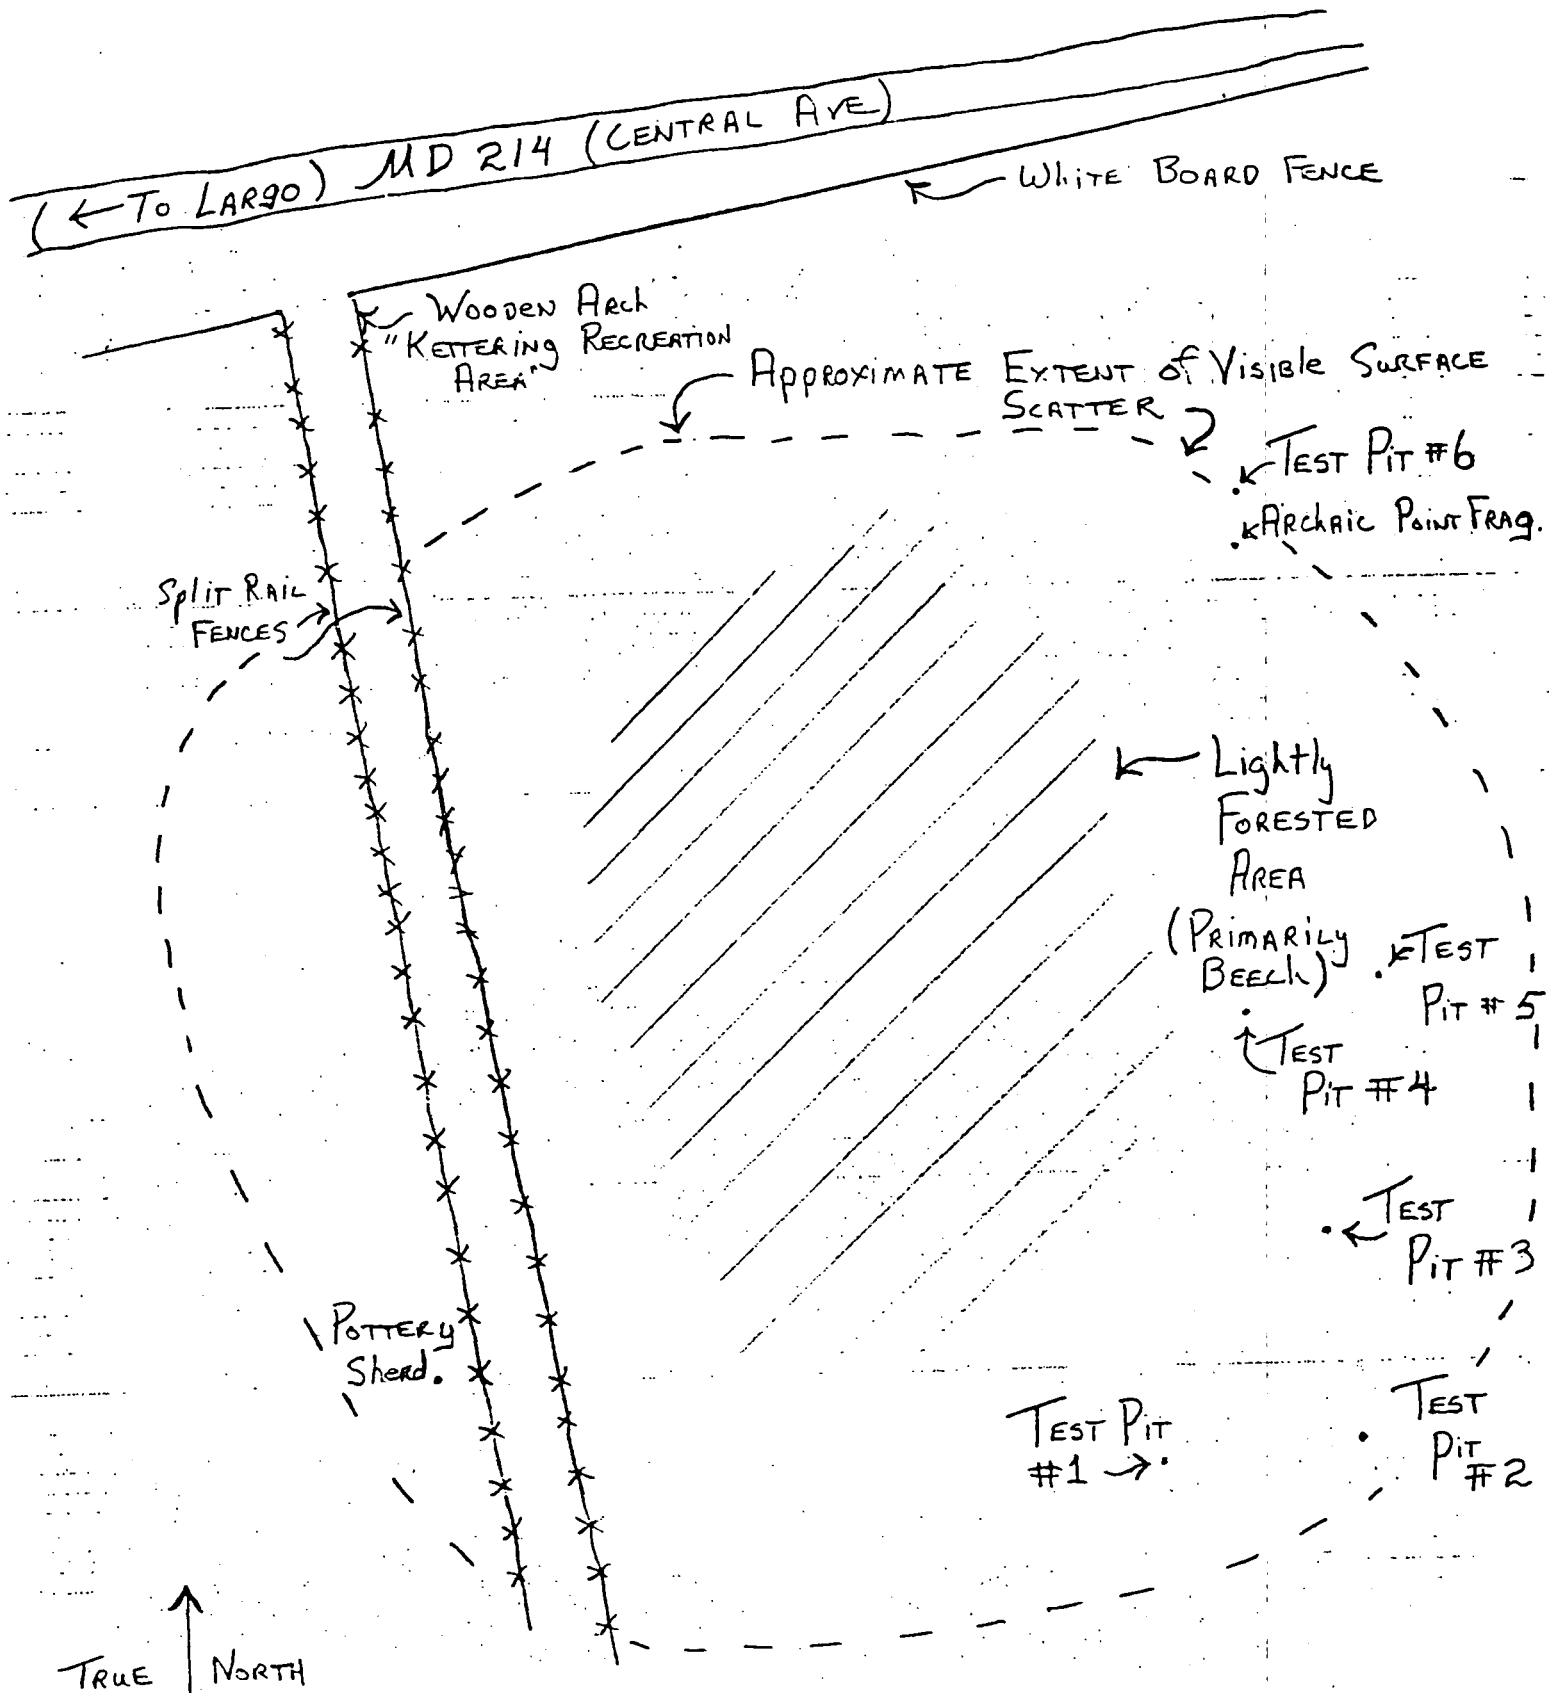 (← To Largo) MD 214 (Central Ave)
White Board Fence
Wooden Arch
"Kettering Recreation
Area"
Approximate Extent of Visible Surface
Scatter
Test Pit #6
Archaic Point Frag.
Split Rail
Fences
Lightly
Forested
Area
(Primarily
Beech)
Test
Pit #5
Test
Pit #4
Test
Pit #3
Pottery
Sherd.
Test Pit
#1
Test
Pit
#2
True North